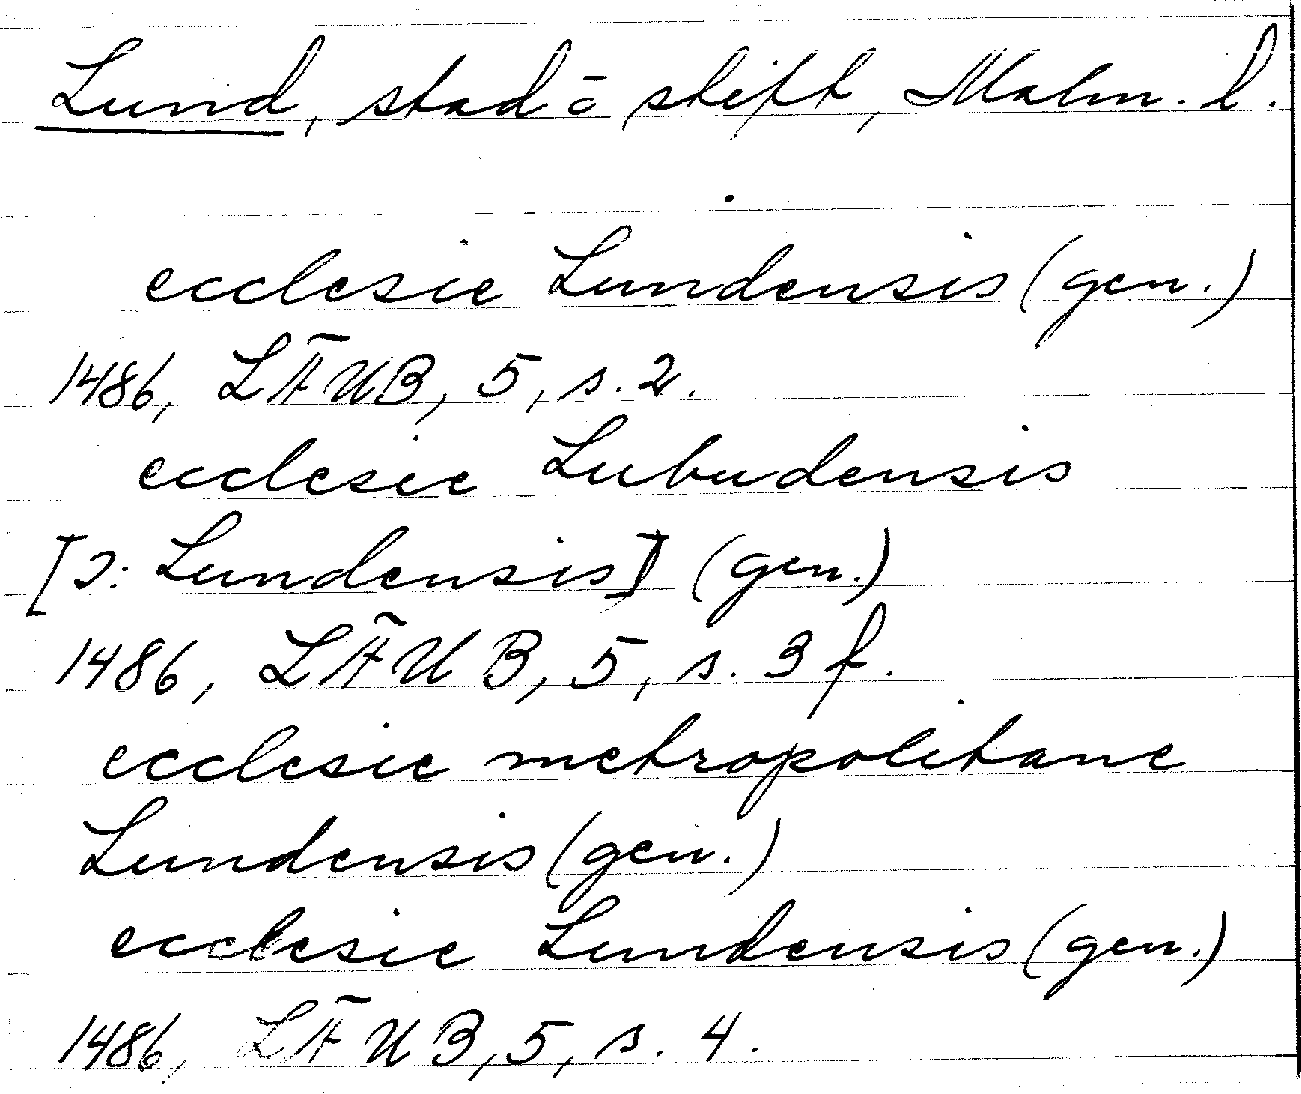 Lund, stad o stift, Malm. l.
ecclesie Lundensis (gen.)
1486, LÄUB, 5, s. 2.
ecclesie Lubudensis
[ɔ: Lundensis] (gen.)
1486, LÄUB, 5, s. 3 f.
ecclesie metropolitane
Lundensis (gen.)
ecclesie Lundensis (gen.)
1486, LÄUB, 5, s. 4.